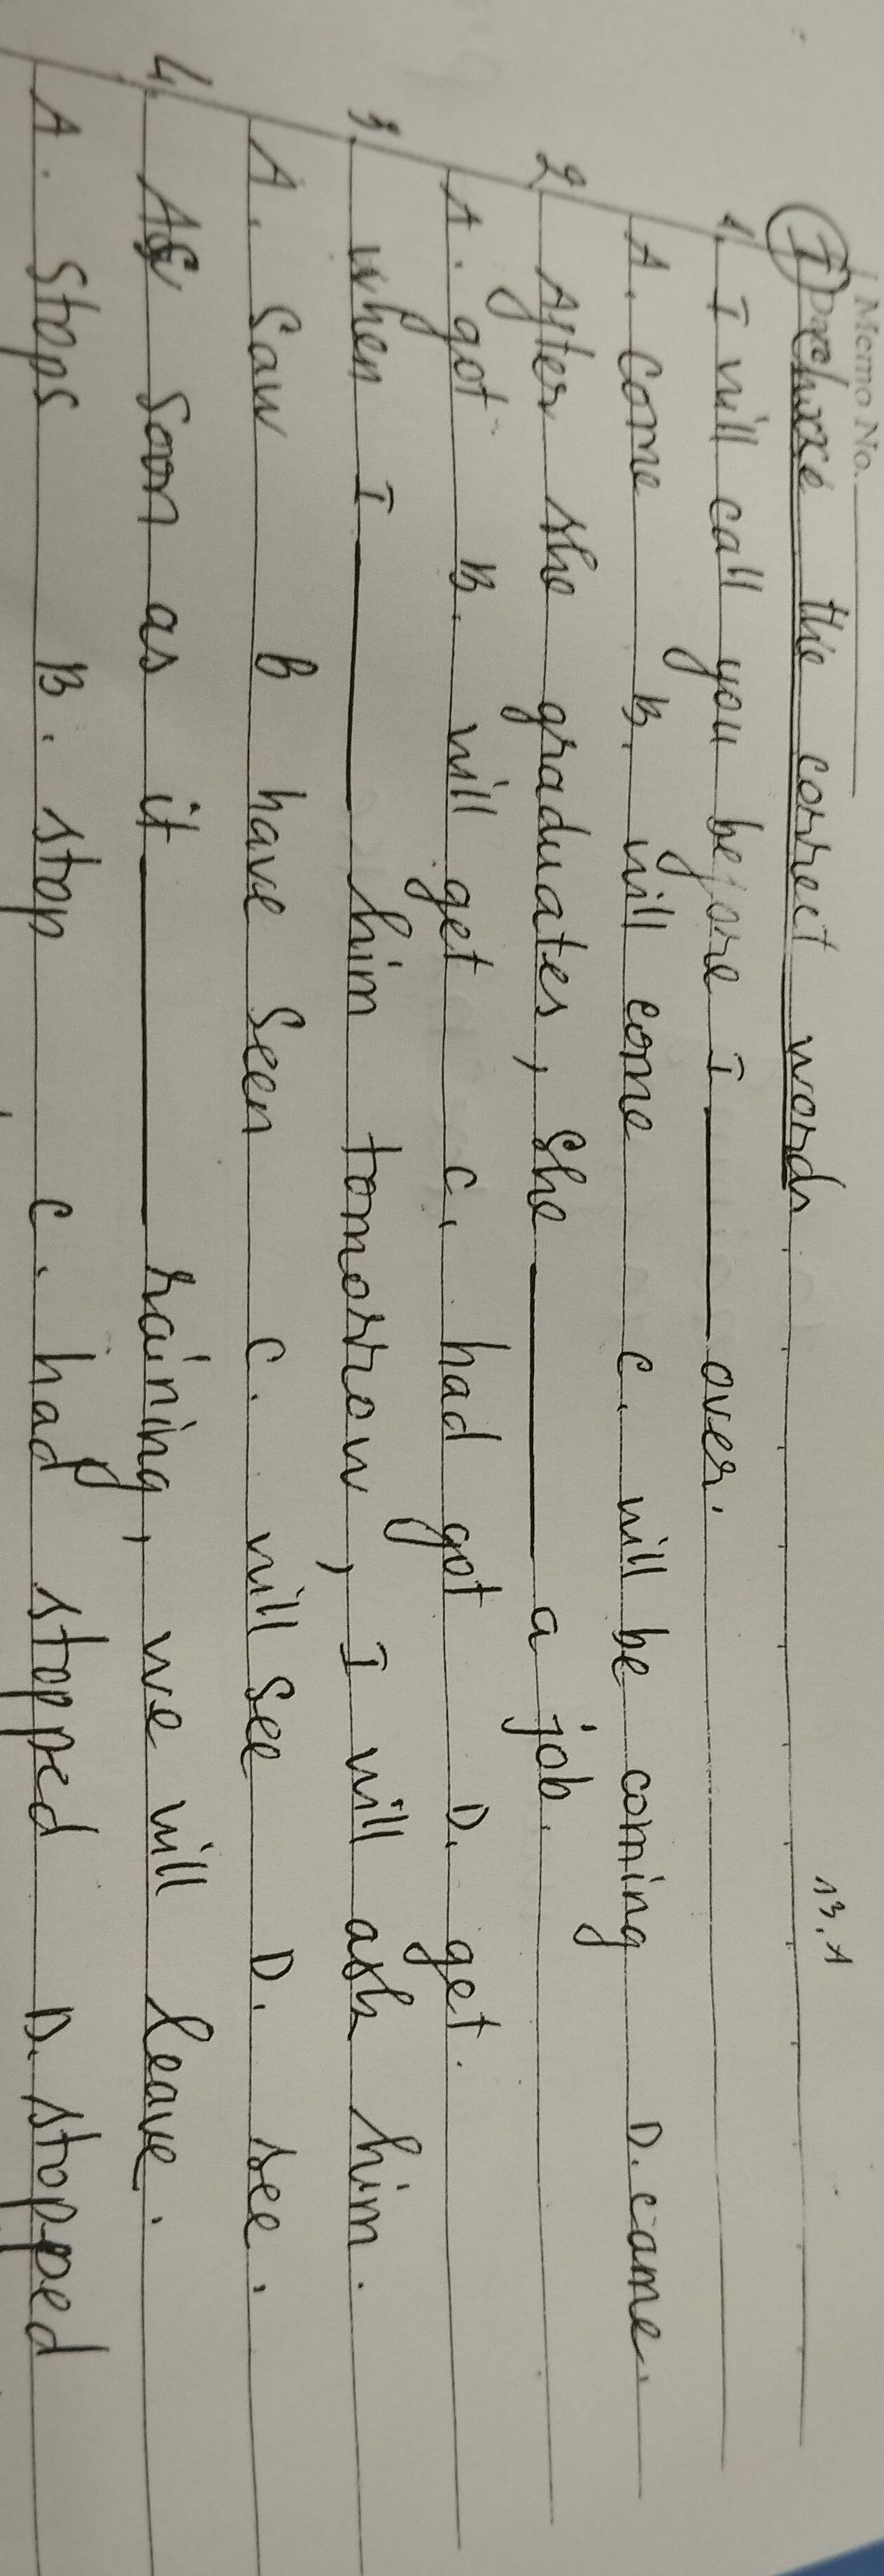 Memo No.
I choose the correct words
13.1
1. I will call you before I ____ over.
A. come B. will come C. will be coming D. came.
2. After she graduates, she ____ a job.
A. got B. will get C. had got D. get.
3. when I ____ him tomorrow, I will ask him.
A. saw B have seen C. will see D. see.
4. As soon as it ____ raining, we will leave.
A. stops B. stop C. had stopped D. stopped